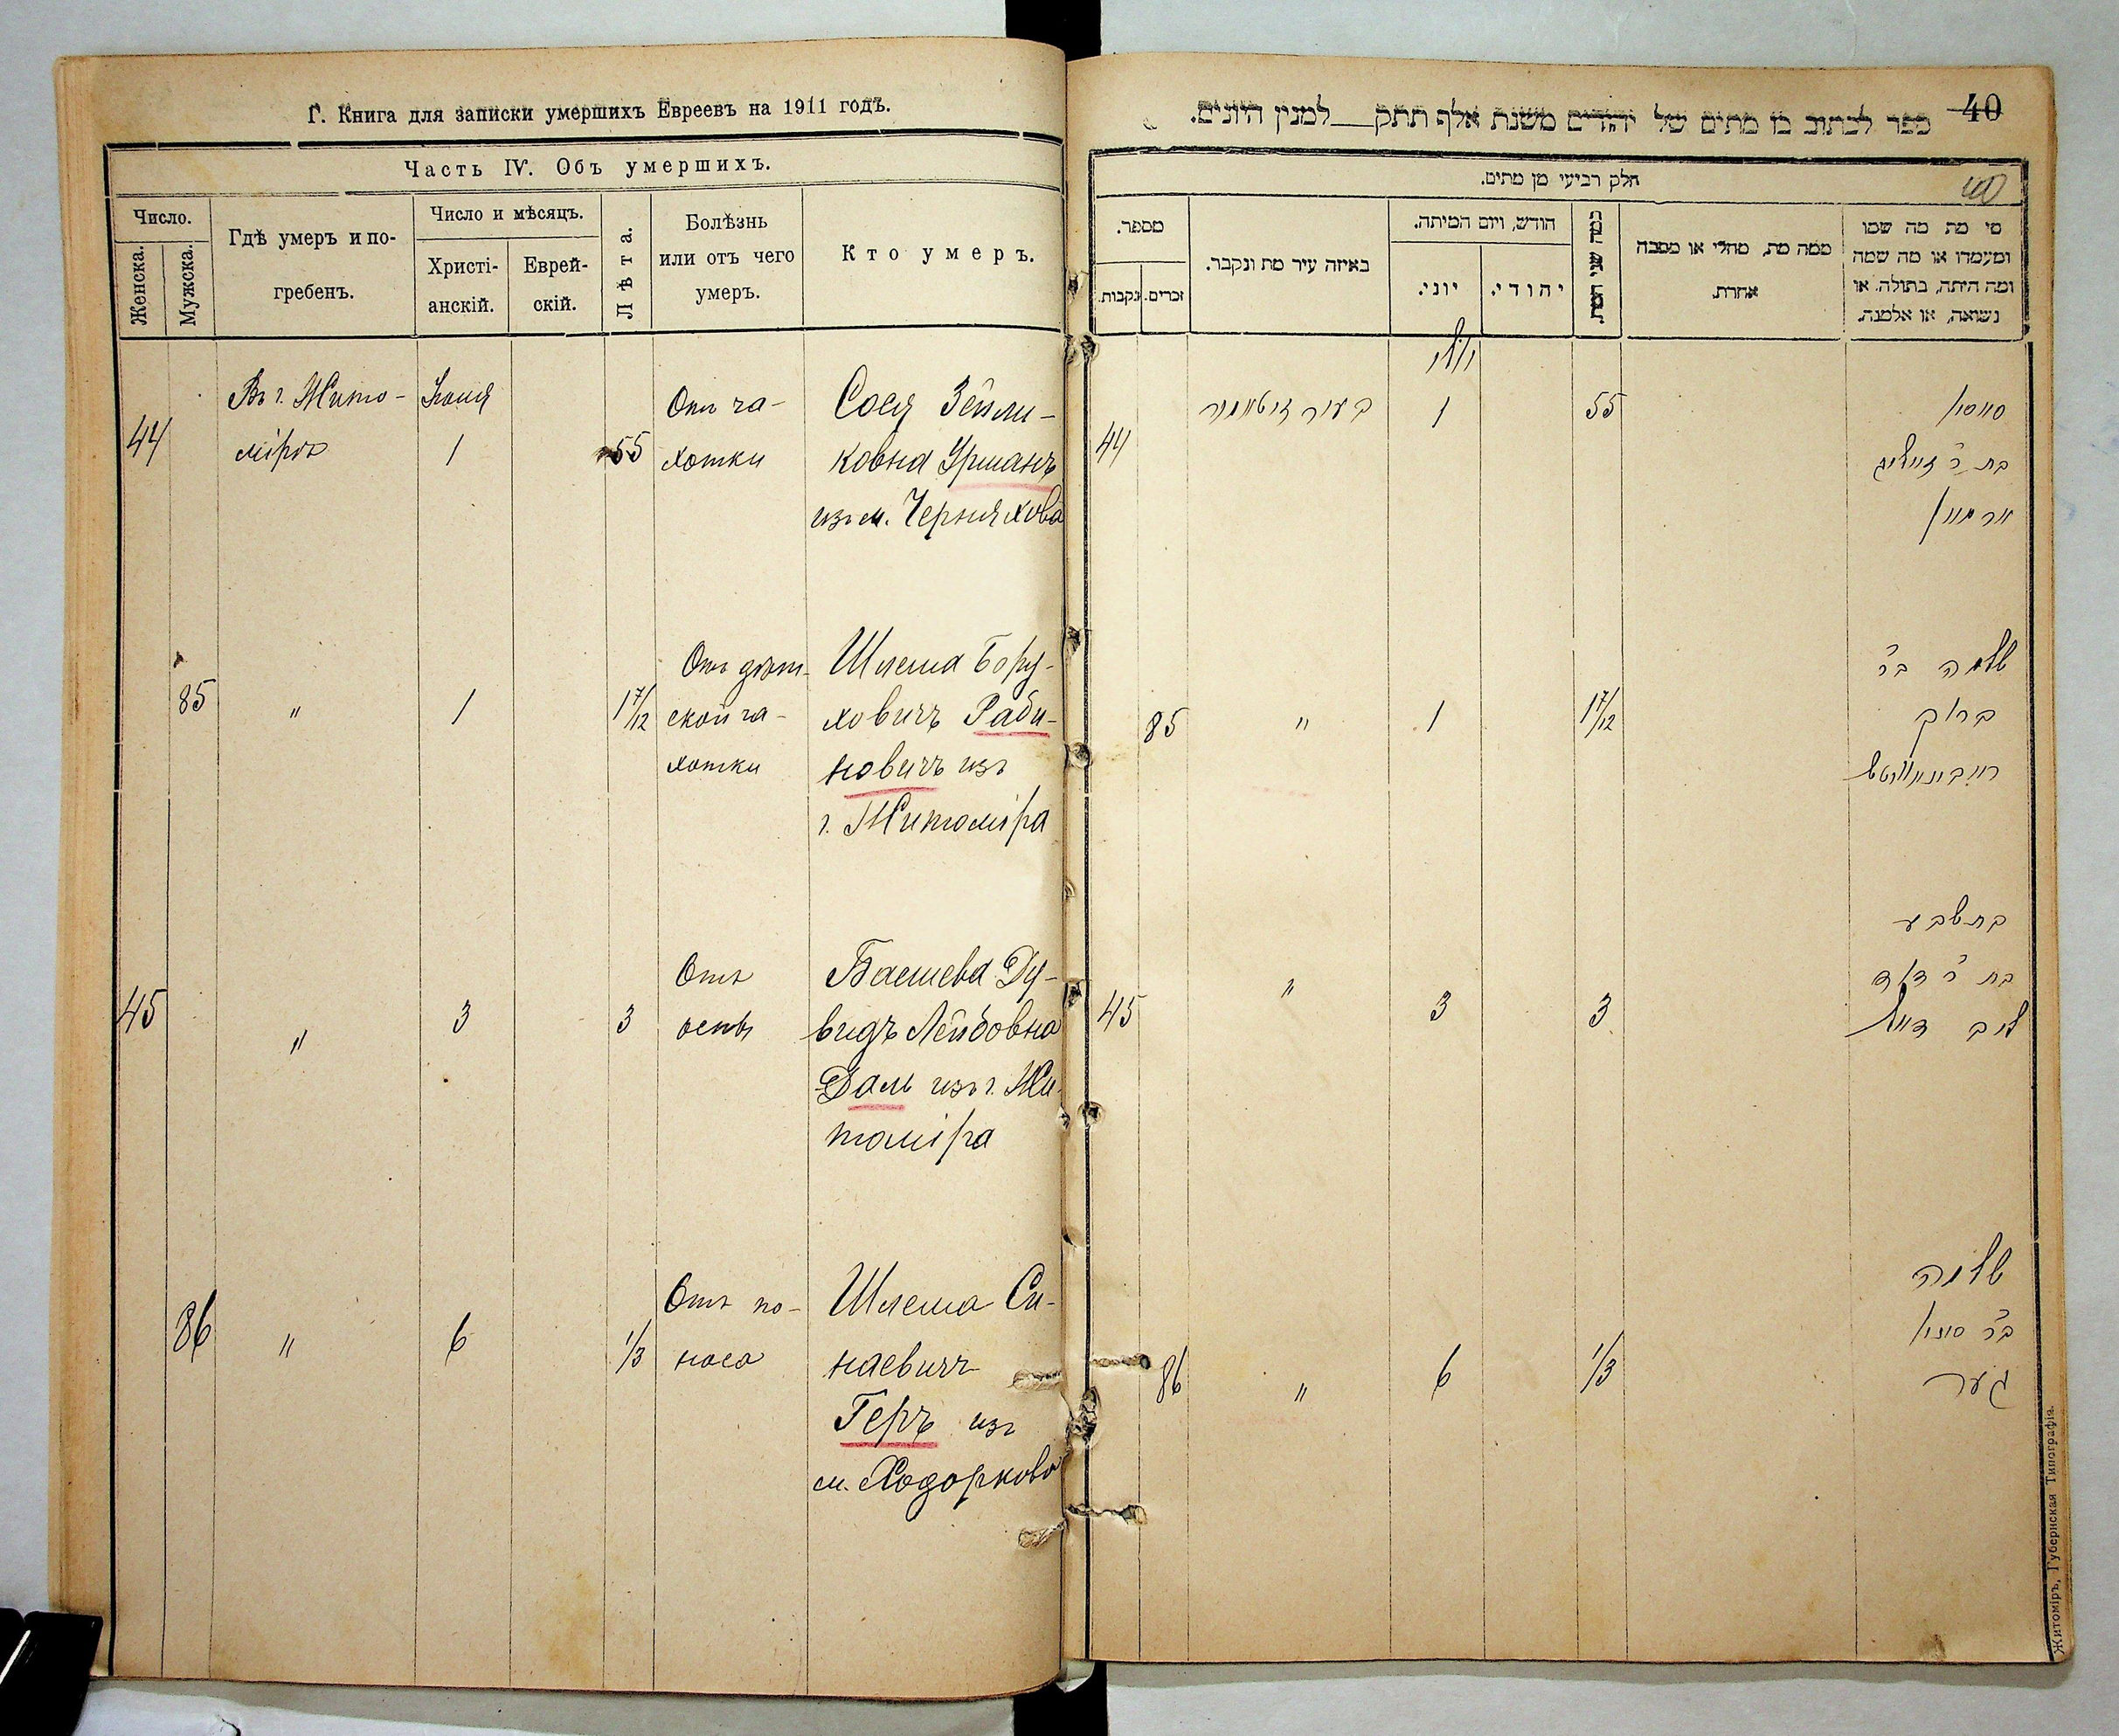 Г. Книга для записки умершихъ Евреевъ на 1911 годъ.
Часть IV. Объ умершихъ.
Число.
Женска.
Мужска.
Гдѣ умеръ и по-
гребенъ.
Число и мѣсяцъ.
Христі-
анскій.
Еврей-
скій.
Лѣта.
Болѣзнь
или отъ чего
умеръ.
Кто умеръ.
Въ г. Жито-
мірѣ
44
1
55
Отъ ча-
хотки
Сося Зейли-
ковна Урманъ
изъ м. Черняхова
85
"
1
17/12
Отъ дѣт-
ской ча-
хотки
Шлема Бору-
ховичъ Раби-
новичъ изъ
г. Житоміра
45
"
3
3
Отъ
оспы
Басшева Ду-
видъ Лейбовна
Даль изъ г. Жи-
томіра
86
"
6
1/3
Отъ по-
носа
Шлема Си-
наевичъ
Геръ изъ
м. Ходоркова
40
ספר לכתוב בו מתים של יהודים משנת אלף תתק למנין היונים.
חלק רביעי מן מתים.
40
מספר.
נקבות.
זכרים.
באיזה עיר מת ונקבר.
חודש, ויום המיתה.
יוני.
יהודי.
כמה שני המת
ממה מת, מחלי או מסבה
אחרת.
מי מת מה שמו
ומעמדו או מה שמה
ומה היתה, בתולה או
נשואה, או אלמנה.
44
בעיר זיטאמיר
1
55
בת ר' זייליג
אורמאן
85
"
1
17/12
שלמה ב״ר
ברוך
ראבינאוויטש
45
"
3
3
בתשבע
בת ר' דוד
ליב דאל
86
"
6
1/3
שלמה
ב״ר סיני
גער
Житоміръ, Губернская Типографія.